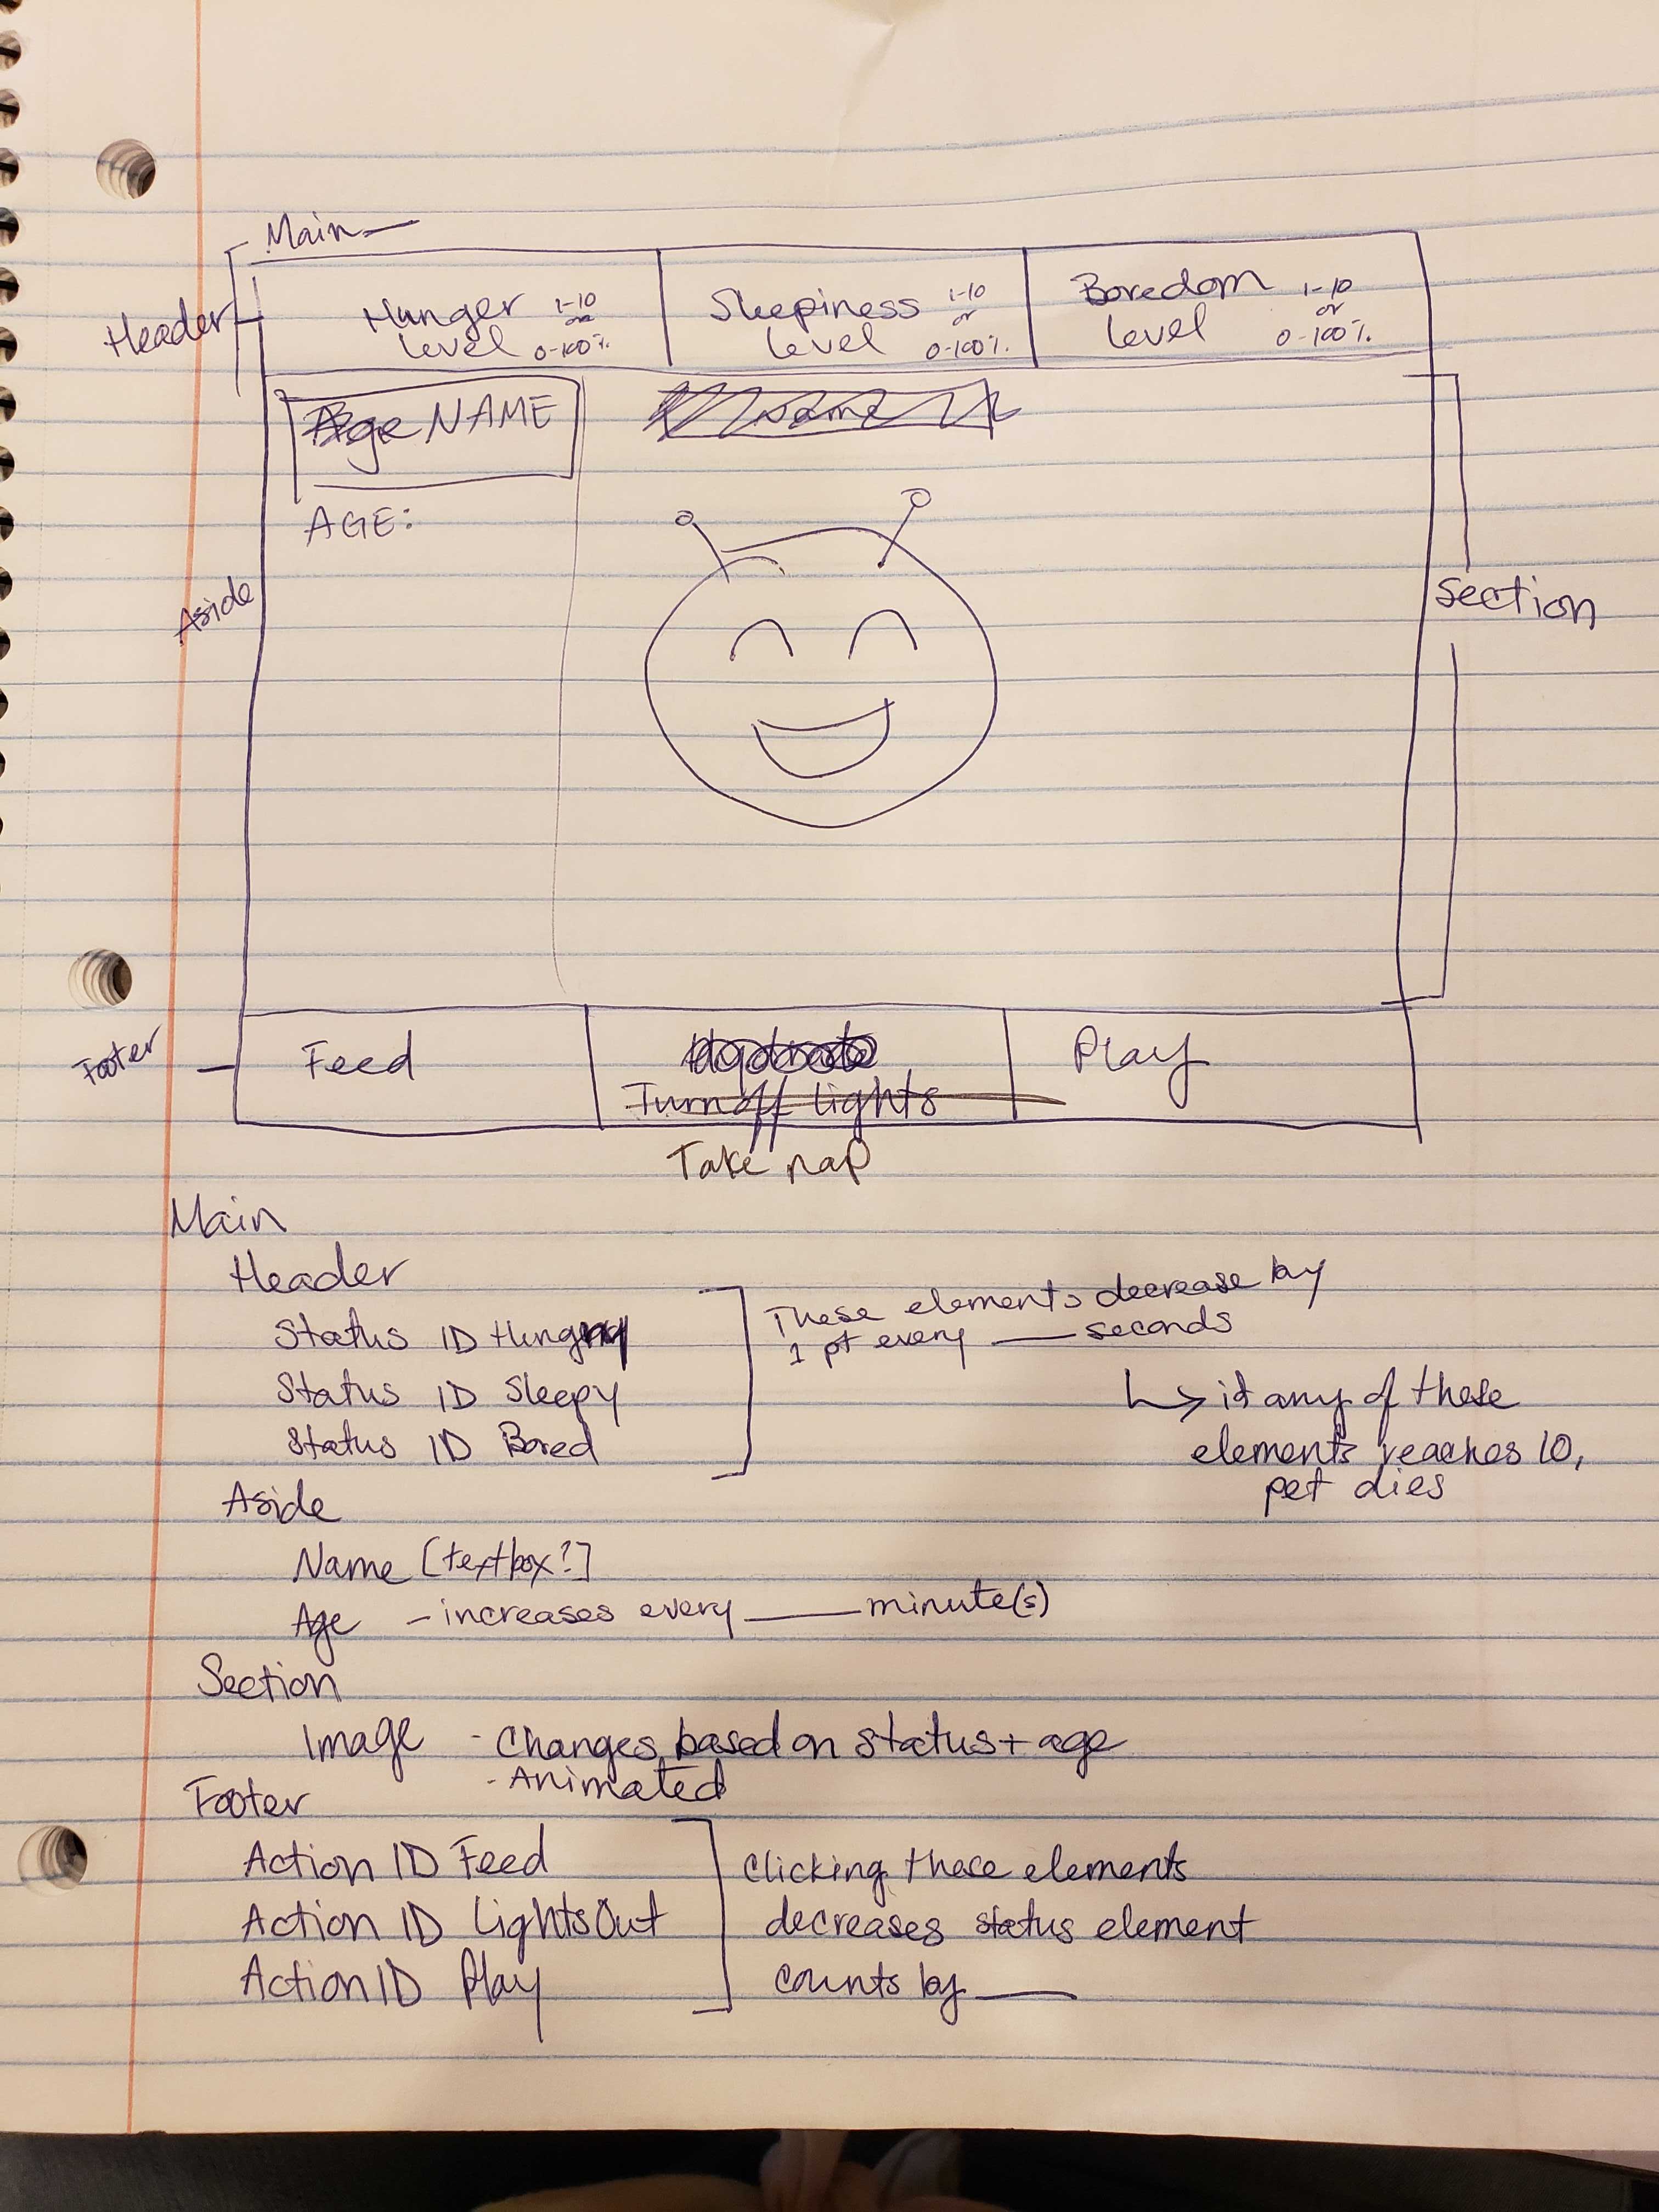 Main
Header
Hunger 1-10
or
Level 0-100%
Sleepiness 1-10
or
Level 0-100%
Boredom 1-10
or
Level 0-100%
Age NAME
Name
AGE:
Aside
Section
Footer
Feed
Hydrate
Turn off lights
Take nap
Play
Main
Header
Status ID Hungry
Status ID Sleepy
Status ID Bored
These elements decrease by
1 pt every ___ seconds
↳ if any of these
elements reaches 10,
pet dies
Aside
Name [textbox?]
Age - increases every ___ minute(s)
Section
Image - Changes based on status + age
- Animated
Footer
Action ID Feed
Action ID LightsOut
Action ID Play
Clicking these elements
decreases status element
counts by ___